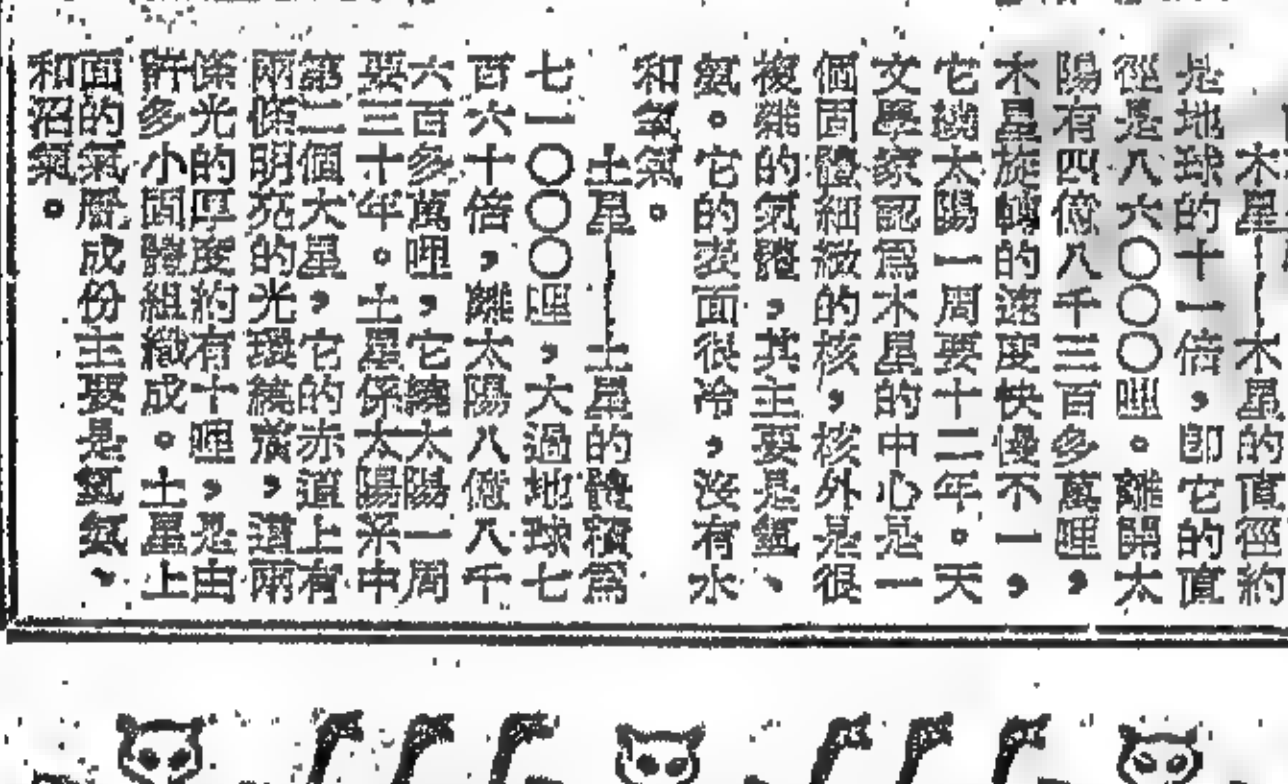 木星——木星的直徑約
是地球的十一倍，卽它的直
徑是八六〇〇〇哩。離開太
陽有四億八千三百多萬哩，
木星旋轉的速度快慢不一，
它繞太陽一周要十二年。天
文學家認爲木星的中心是一
個固體細緻的核，核外是很
複雜的氣體，其主要是氫、
氦。它的表面很冷，沒有水
和氧氣。
土星——土星的體積爲
七一〇〇〇哩，大過地球七
百六十倍，離太陽八億八千
六百多萬哩，它繞太陽一周
要三十年。土星係太陽系中
第二個大星，它的赤道上有
兩條明亮的光環繞着，這兩
條光的厚度約有十哩，是由
許多小固體組織成。土星上
面的氣層成份主要是氫氣、
和沼氣。